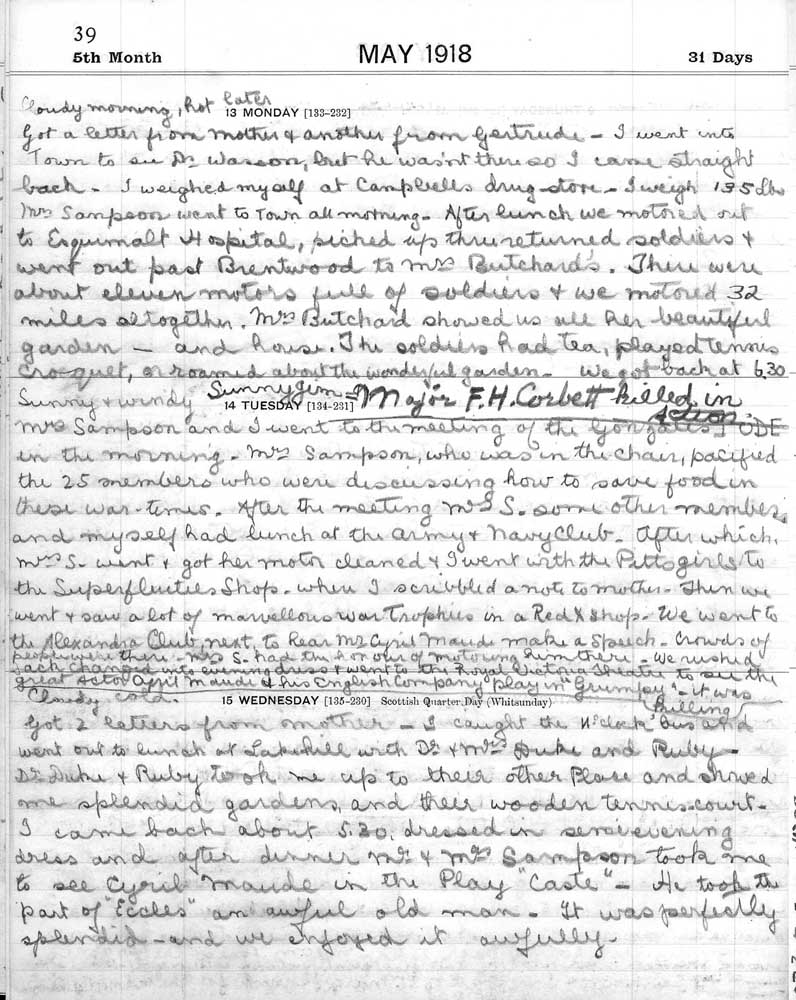 39
5th Month MAY 1918 31 Days
Cloudy morning, hot later
13 MONDAY [133-232]
Got a letter from mother & another from Gertrude - I went into
Town to see Dr. Wasson, but he wasn't there so I came straight
back - I weighed myself at Campbells drug-store - I weigh 135 lbs
Mrs Sampson went to Town all morning - After lunch we motored out
to Esquimalt Hospital, picked up three returned soldiers &
went out past Brentwood to Mrs Butchard's. There were
about eleven motors full of soldiers & we motored 32
miles altogether. Mrs Butchard showed us all her beautiful
garden - and house. The soldiers had tea, played tennis
croquet, or roamed about the wonderful garden - We got back at 6.30
Sunny & windy Sunny Jim - Major F.H. Corbett killed in
14 TUESDAY [134-231] Action.
Mrs Sampson and I went to the meeting of the Gonzales IODE
in the morning. Mrs Sampson, who was in the chair, pacified
the 25 members who were discussing how to save food in
these war-times. After the meeting Mrs S. some other members,
and myself had lunch at the Army & Navy Club. After which,
Mrs S. went & got her motor cleaned & I went with the Pitts girls to
the Superfluities Shop - when I scribbled a note to mother - Then we
went & saw a lot of marvellous war Trophies in a Red X shop - We went to
the Alexandra Club, next, to hear Mr Cyril Maude make a speech - Crowds of
people were there - Mrs S. had the honour of motoring him there - We rushed
back changed into evening dress & went to the Royal Victoria Theatre to see the
great Actor Cyril Maude & his English Company play in "Grumpy" - it was
killing
Cloudy cold.
15 WEDNESDAY [135-230] Scottish Quarter Day (Whitsunday)
Got 2 letters from mother - I caught the 11 o'clock bus and
went out to lunch at Lakehill with Dr & Mrs Duke and Ruby -
Dr. Duke & Ruby took me up to their other Place and showed
me splendid gardens, and their wooden tennis-court -
I came back about 5.30. dressed in semi evening
dress and after dinner Mr & Mrs Sampson took me
to see Cyril Maude in the Play "Caste" - He took the
part of "Eccles" an awful old man - It was perfectly
splendid - and we enjoyed it awfully -